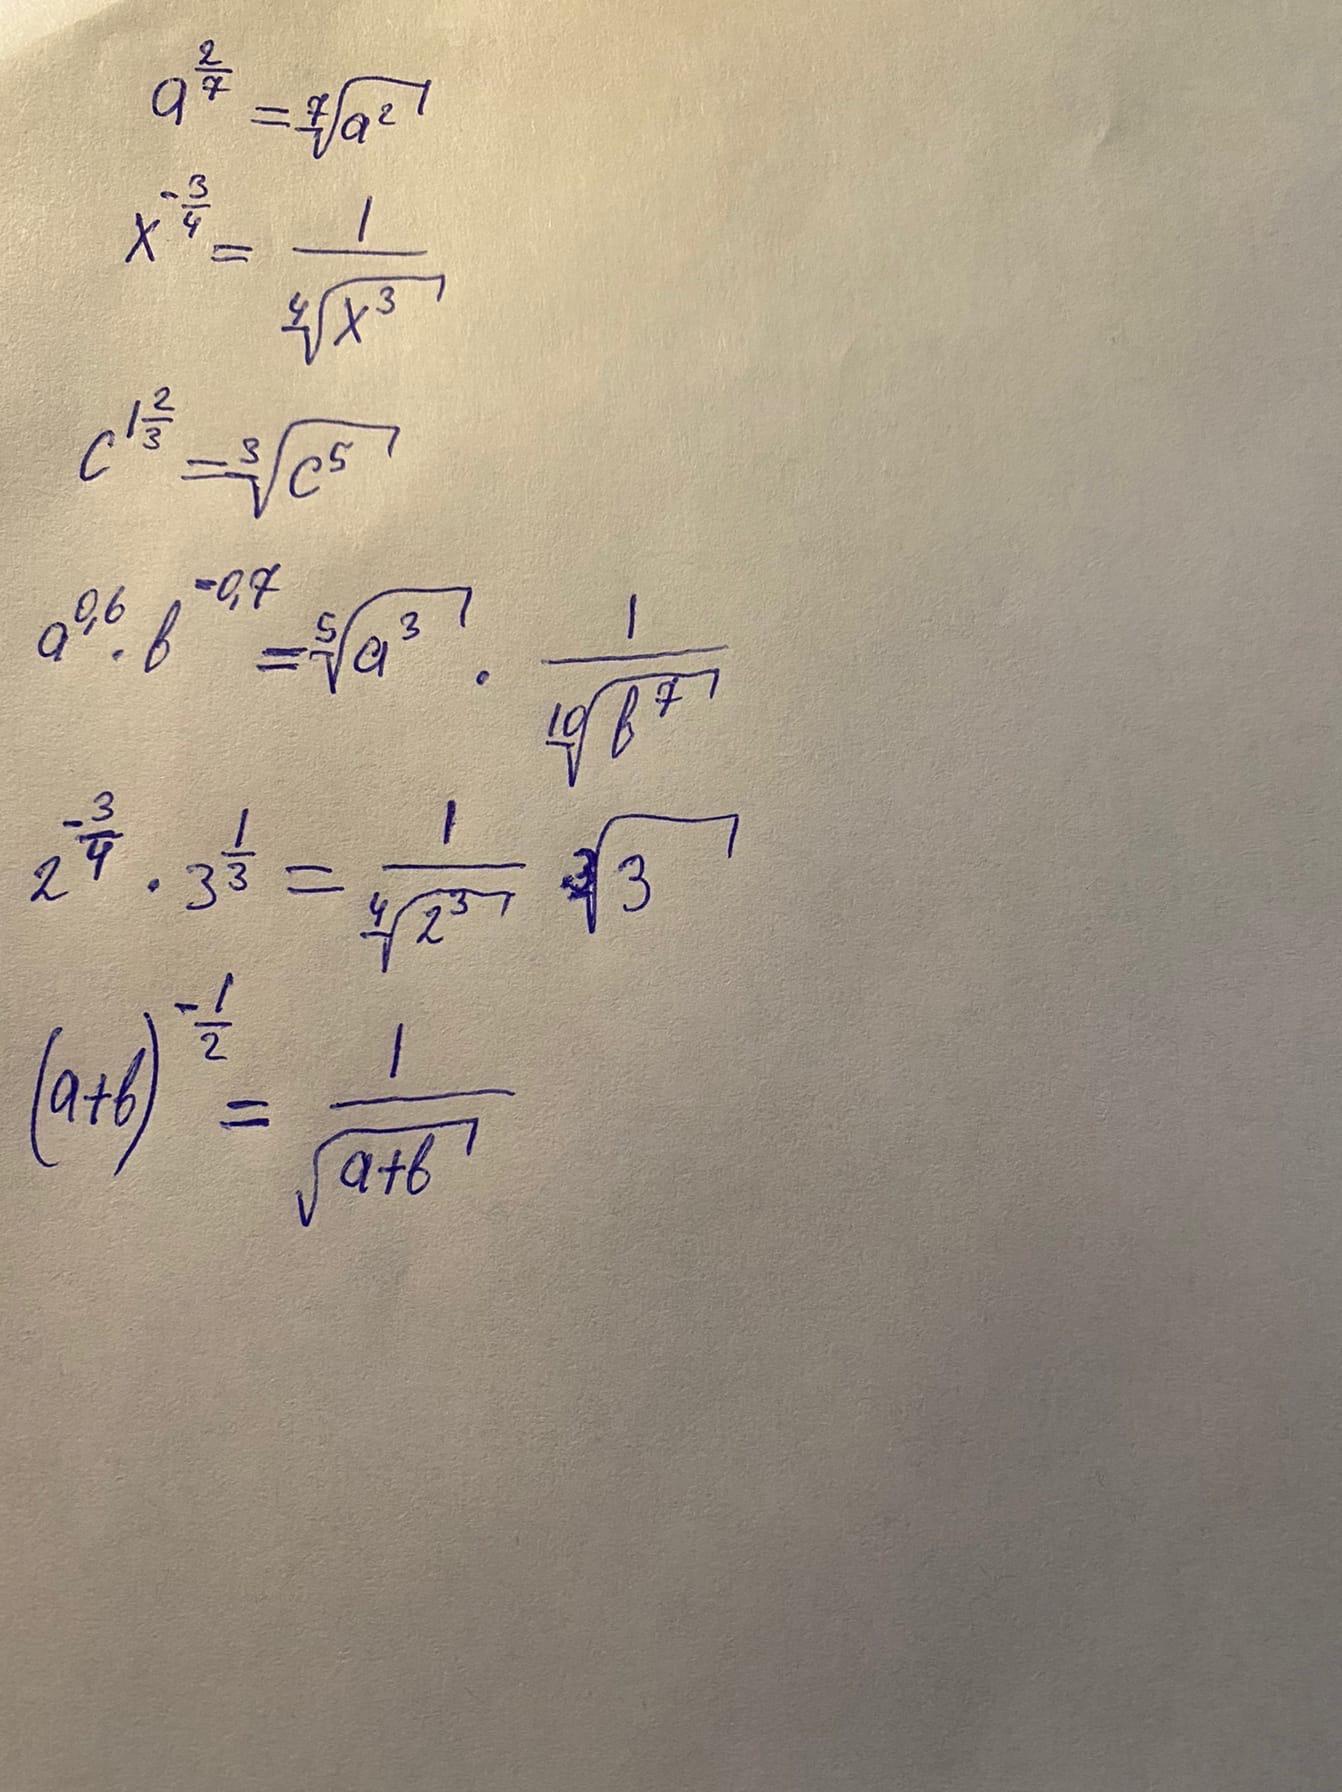 a^{\frac{2}{7}} = \sqrt[7]{a^2}
x^{-\frac{3}{4}} = \frac{1}{\sqrt[4]{x^3}}
c^{1\frac{2}{3}} = \sqrt[3]{c^5}
a^{0,6} \cdot b^{-0,7} = \sqrt[5]{a^3} \cdot \frac{1}{\sqrt[10]{b^7}}
2^{-\frac{3}{4}} \cdot 3^{\frac{1}{3}} = \frac{1}{\sqrt[4]{2^3}} \sqrt[3]{3}
(a+b)^{-\frac{1}{2}} = \frac{1}{\sqrt{a+b}}